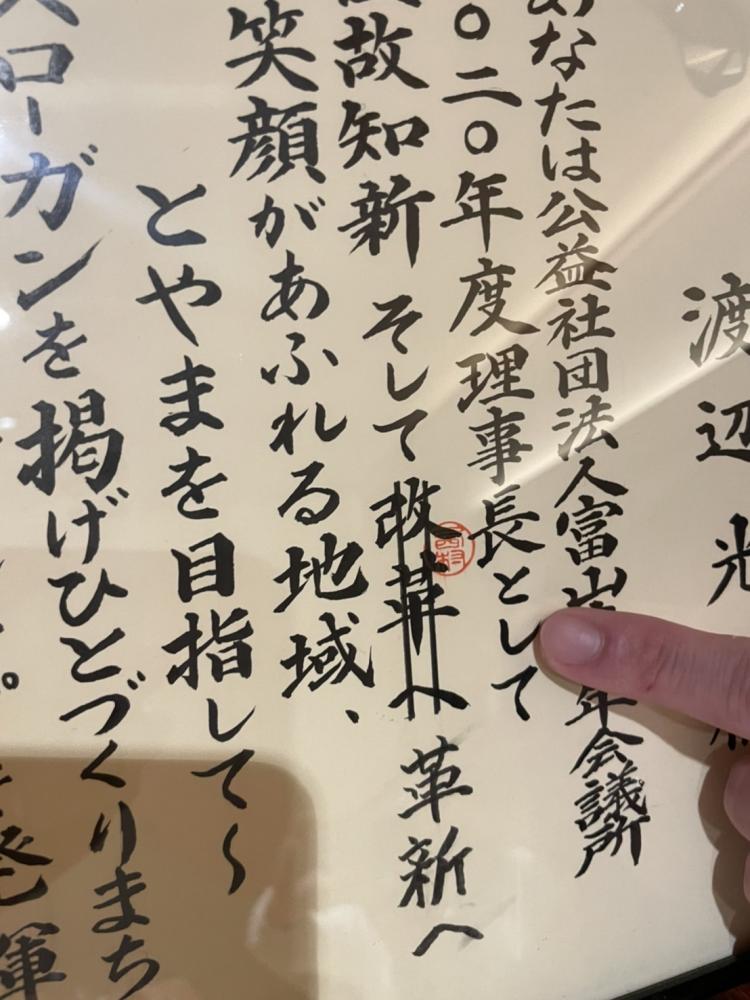 渡辺光
あなたは公益社団法人富山青年会議所
〇二〇年度理事長として
故知新 そして改革へ革新へ
笑顔があふれる地域、
とやまを目指して〜
スローガンを掲げひとづくりまち
発揮